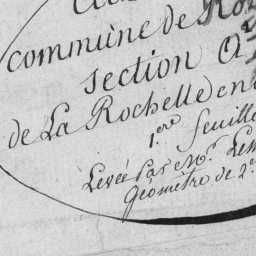 commune de Ro
section
de La Rochelle en
1.ere feuille
Levée Par Mr. Lem
Géomètre de 2.e